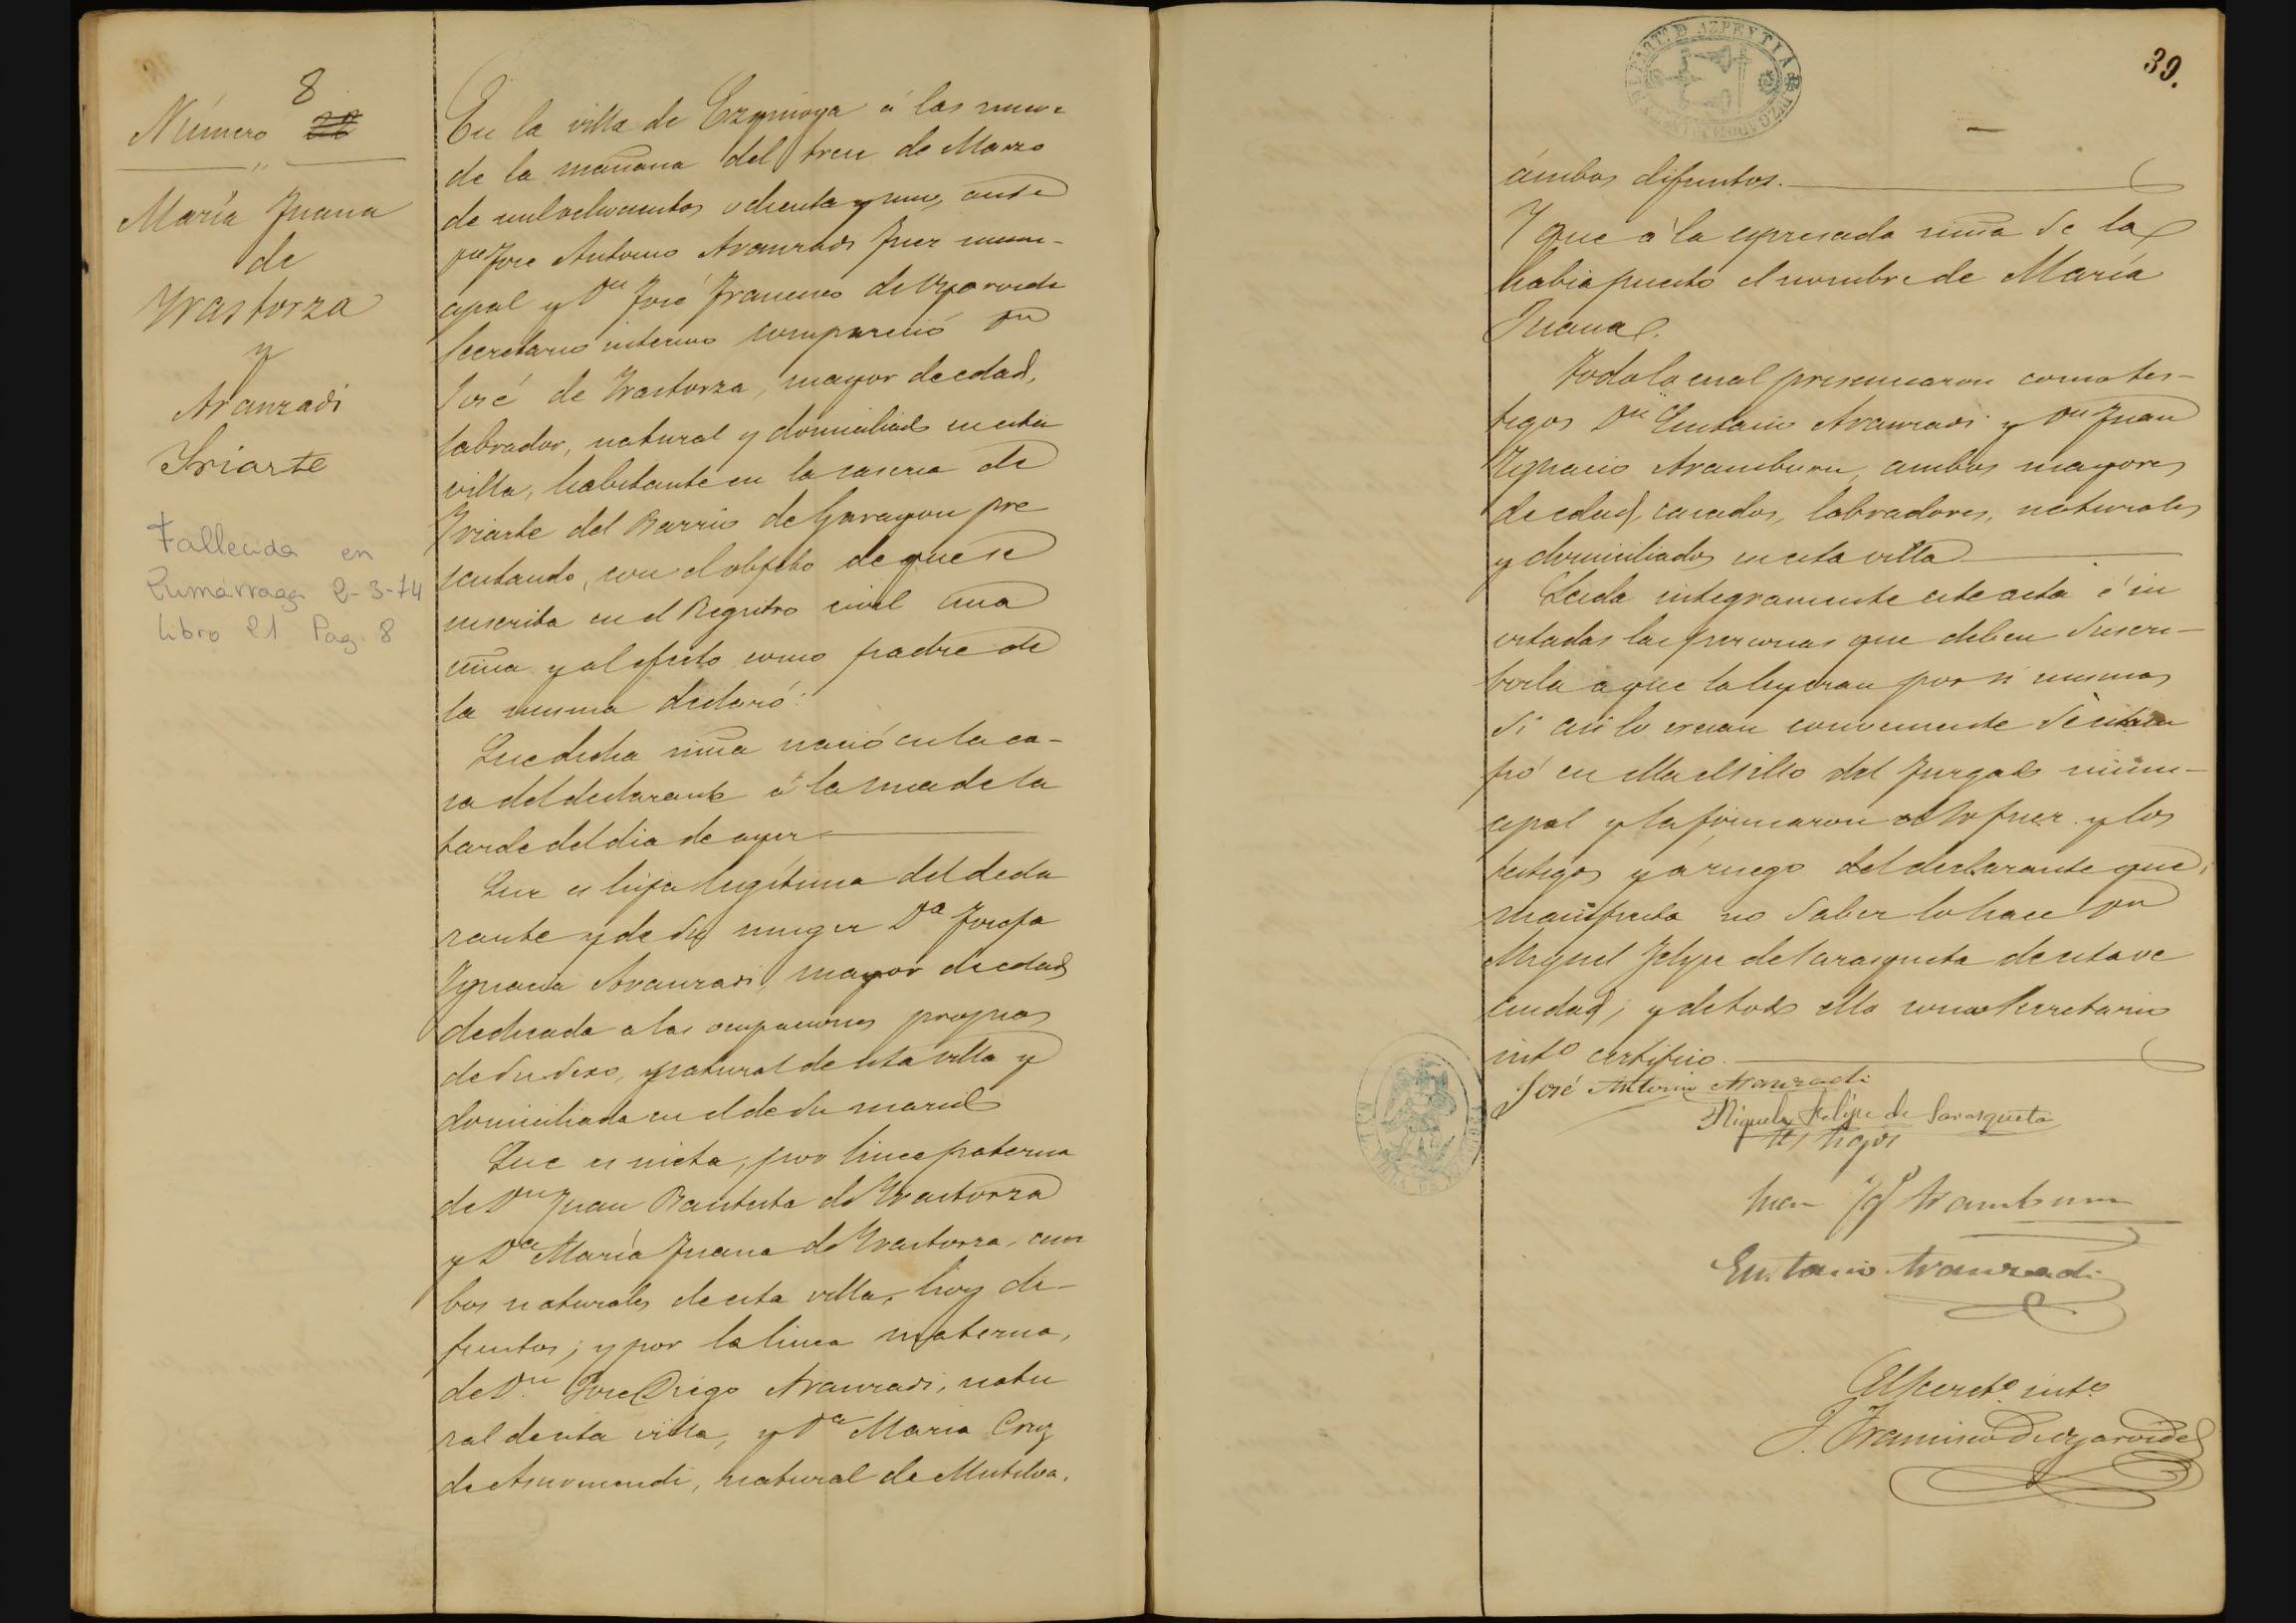 8
Número 22
María Juana
de
Yrastorza
y
Aranzadi
Iriarte
Fallecida en
Zumárraga 2-3-74
Libro 21 Pag. 8
En la villa de Ezquioga á las nueve
de la mañana del trece de Marzo
de mil ochocientos ochenta y uno, ante
Dn José Antonio Aranzadi Juez muni-
cipal y Dn José Francisco de
Secretario interino compareció Dn
José de Yrastorza, mayor de edad,
labrador, natural y domiciliado en esta
villa, habitante en la casería de
Yriarte del Barrio de pre
sentando, con el objeto de que se
inscriba en el Registro civil una
niña y al efecto como padre de
la misma declaró:
Que dicha niña nació en la ca-
sa del declarante á la una de la
tarde del dia de ayer
Que es hija legítima del decla
rante y de su muger Da Josefa
Ygnacia Aranzadi, mayor de edad
dedicada a las ocupaciones propias
de su sexo, natural de esta villa y
domiciliada en el de su marido
Que es nieta, por linea paterna
de Dn Juan Bautista de Yrastorza
y Da María Juana de Yrastorza, am
bos naturales de esta villa, hoy di-
funtos; y por la linea materna,
de Dn José Diego Aranzadi, natu
ral de esta villa, y Da Maria Cruz
de, natural de Mutiloa,
PART.º D AZPEYTIA
39.
ámbos difuntos.
Y que á la expresada niña se la
habia puesto el nombre de María
Juana.
Todo lo cual presenciaron como tes-
tigos Dn Eustasio Aranzadi y Dn Juan
Ygnacio Aramburu, ambos mayores
de edad, casados, labradores, naturales
y domiciliados en esta villa
Leida integramente este acta é in
vitadas las personas que deben suscri-
birla á que la leyeran por si mismas
si asi lo creian conveniente se estam
pó en ella el sello del Juzgado muni-
cipal y la firmaron el Sr Juez y los
testigos y á ruego del declarante que
manifiesta no saber lo hace Dn
Miguel Felipe de Larasqueta de esta ve
cindad; y de todo ello como Secretario
intº certifico.
José Antonio Aranzadi
Miguel Felipe de Larasqueta
Testigos
Juan Ygº Aramburu
Eustasio Aranzadi
El Secretº intº
J. Francisco de